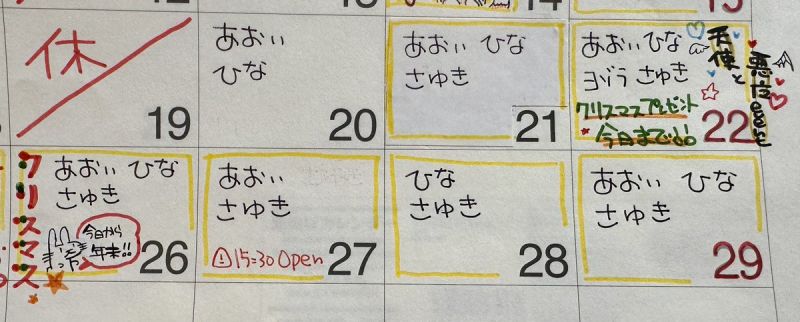 休
19
あおぃ
ひな
20
あおぃ ひな
さゆき
21
あおぃ ひな
ヨゾラ さゆき
クリスマスプレゼント
今日まで!!
天使と
22
クリスマス
あおぃ ひな
さゆき
今日から
年末!!
26
あおぃ
さゆき
15:30 Open
27
ひな
さゆき
28
あおぃ ひな
さゆき
29